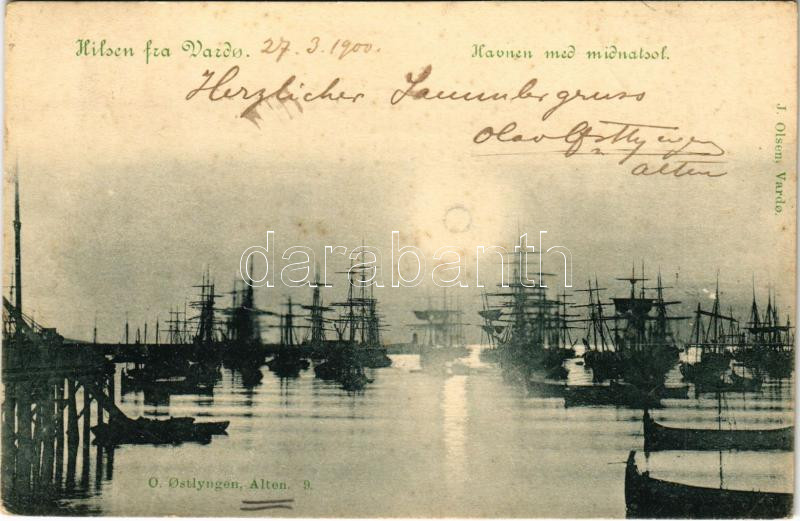 Hilsen fra Vardø. 27.3.1900.
Havnen med midnatsol.
Herzlicher Sammlergruss
Olav Østlyngen
Alten
J. Olsen, Vardø.
darabanth
O. Østlyngen, Alten. 9.